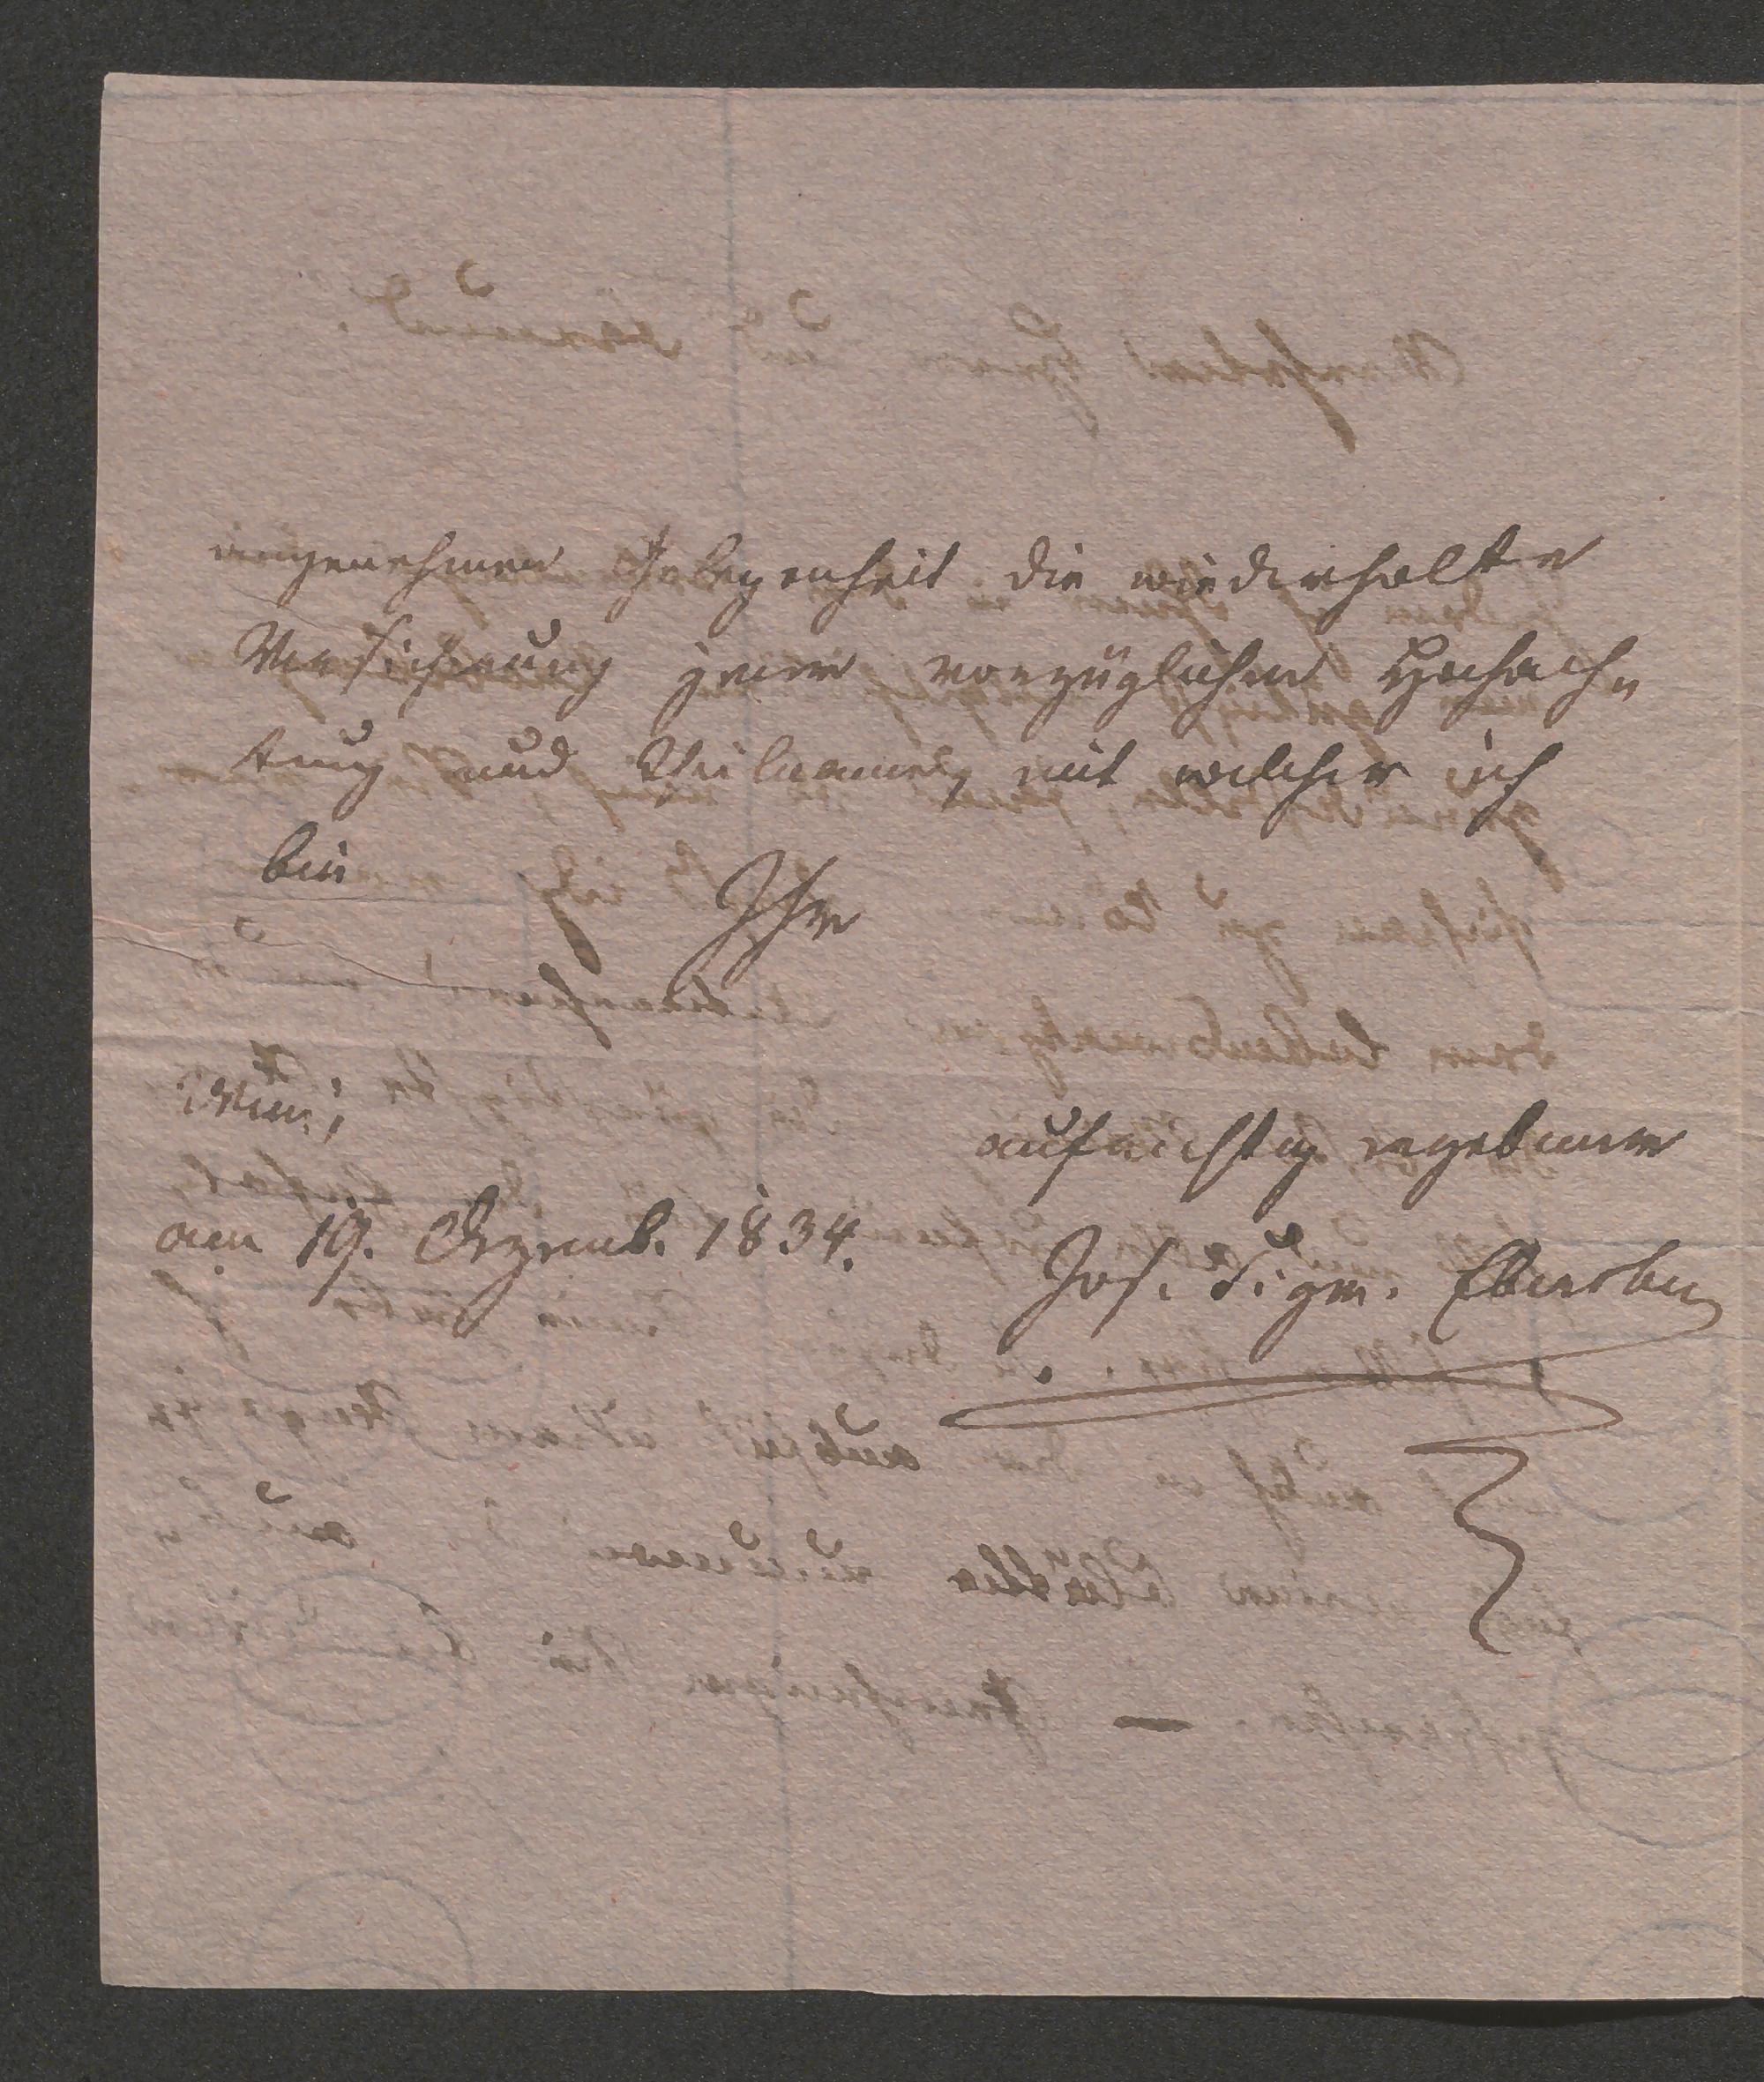 angenehmen Gelegenheit die wiederholte
Versicherung jener vorzüglichen Hochach„
tung und mit welcher ich
bin
Ihr
Wien,
aufrichtig ergebener
am 19. Dezemb. 1834.
Jos. Sigm. Ebersberg